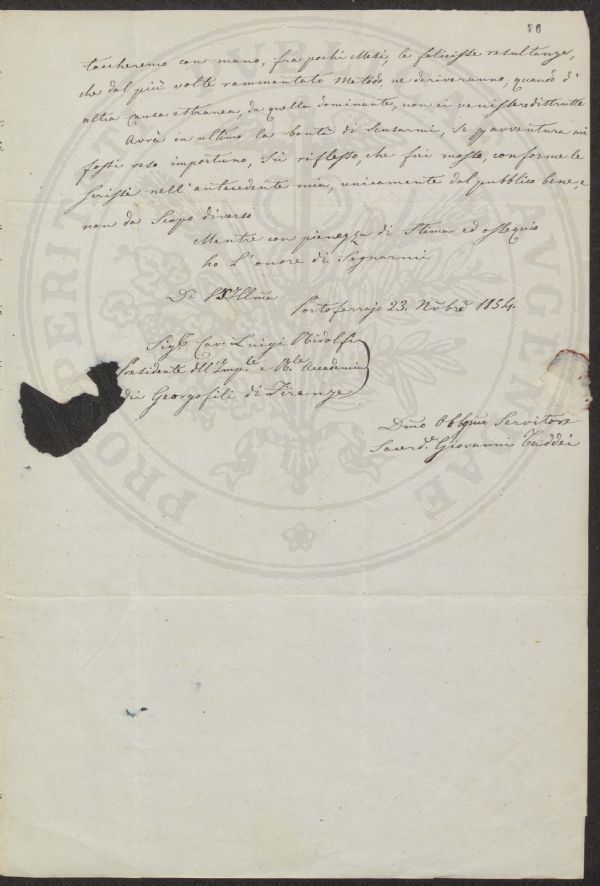 76
toccheremo con mano, fra pochi Mesi, le felicisse resultanze,
che dal più volte rammentato Metodo, ne deriveranno, quando d'
altra causa estranea, da quella dominante, non ci venissero distrutte
Avrà in ultimo la bontà di Scusarmi, se p avventura mi
fossi reso importuno, Sul riflesso, che fui mosso, conforme le
scrissi nell'antecedente mia, unicamente dal pubblico bene, e
non da Scopo diverso
Mentre con pienezza di Stima ed ossequio
ho L'onore di Segnarmi
Di Illma
Portoferrajo 23. Nvbre 1854.
Sigr Cav. Luigi Ridolfi
Presidente dell'Imple e Rle Accademia
dei Georgofili di Firenze
Dmo Obbgmo Servitore
Sacerde Giovanni Taddei
PROSPERITATI PUBLICAE AUGENDAE